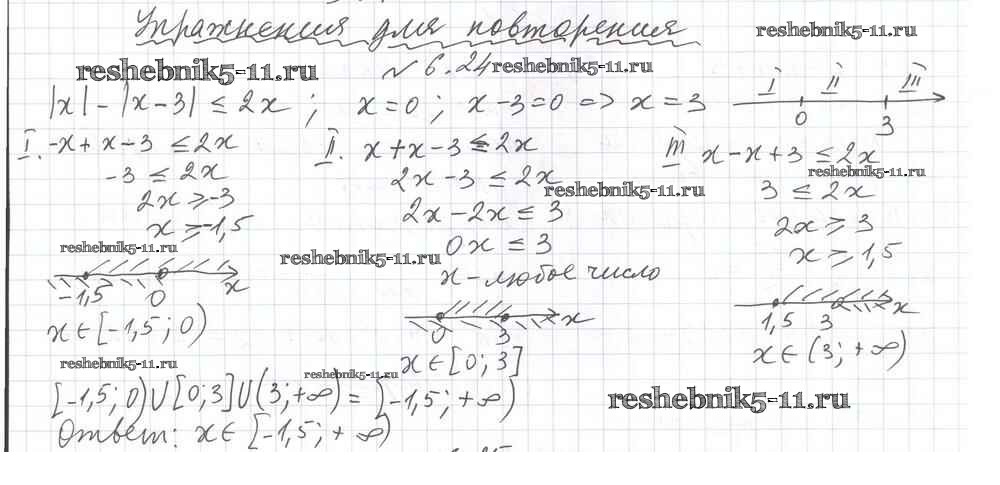 Упражнения для повторения
reshebnik5-11.ru
reshebnik5-11.ru
№ 6.24
reshebnik5-11.ru
|x| - |x-3| ≤ 2x ; x=0 ; x-3=0 => x=3
I II III
0 3
I. -x+x-3 ≤ 2x
-3 ≤ 2x
2x ≥ -3
x ≥ -1,5
reshebnik5-11.ru
-1,5 0 x
x ∈ [-1,5; 0)
reshebnik5-11.ru
II. x+x-3 ≤ 2x
2x-3 ≤ 2x
reshebnik5-11.ru
2x-2x ≤ 3
0x ≤ 3
reshebnik5-11.ru
x - любое число
0 3 x
x ∈ [0; 3]
reshebnik5-11.ru
III x-x+3 ≤ 2x
reshebnik5-11.ru
3 ≤ 2x
2x ≥ 3
x ≥ 1,5
1,5 3 x
x ∈ (3; +∞)
reshebnik5-11.ru
[-1,5; 0) U [0; 3] U (3; +∞) = [-1,5; +∞)
Ответ: x ∈ [-1,5; +∞)